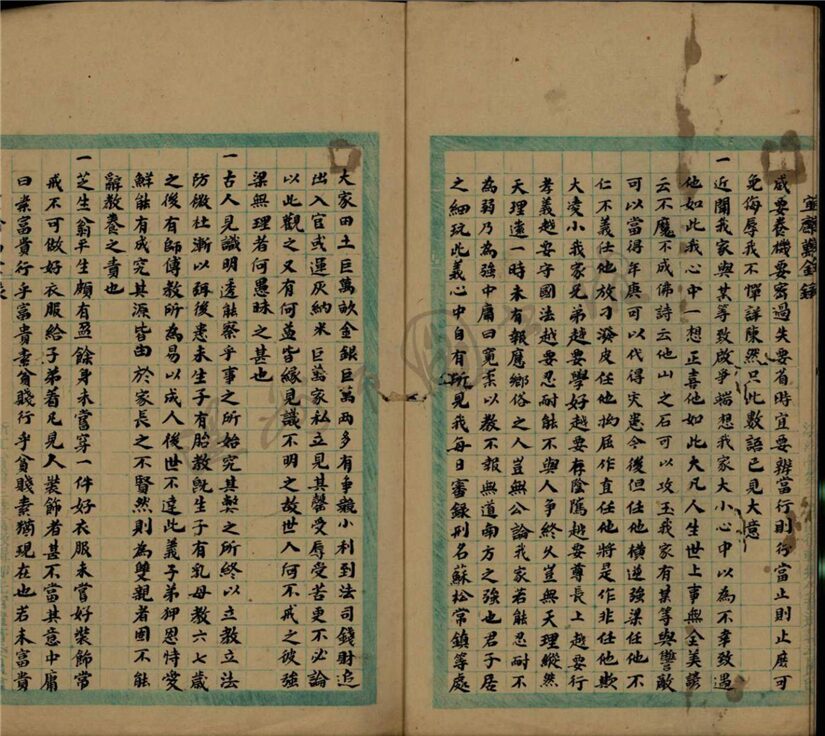 威要養機要密過失要省時宜要辨當行則行當止則止庶可
免侮辱我不憚詳陳然只此數語已見大意
一近聞我家與某等致啟爭端想我家大小心中以為不幸致遇
他如此我心中一想正喜他如此大凡人生世上事無全美諺
云不魔不成佛詩云他山之石可以攻玉我家有某等與讐敵
可以當得年庚可以代得灾患令後但任他橫逆強梁任他不
仁不義任他放刁潑皮任他拗屈作直任他將是作非任他欺
大凌小我家兄弟越要學好越要存陰隲越要尊長上越要行
孝義越要守國法越要忍耐能不與人爭終久豈無天理縱然
天理遠一時未有報應鄉俗之人豈無公論我家若能忍耐不
為弱乃為強中庸曰寬柔以教不報無道南方之強也君子居
之細玩此義心中自有所見我每日審錄刑名蘇松常鎮等處
大家田土巨萬畝金銀巨萬兩多有爭競小利到法司錢財追
出入官或運灰納米巨萬家私立見其罄受辱受苦更不必論
以此觀之又有何益皆緣見識不明之故世人何不戒之彼強
梁無理者何愚昧之甚也
一古人見識明遠能察乎事之所始究其弊之所終以立教立法
防微杜漸以弭後患未生子有胎教既生子有乳母教六七歲
之後有師傅教所為易以成人後世不達此義子弟狎恩恃愛
鮮能有成究其源皆由於家長之不賢然則為雙親者固不能
辭教養之責也
一芝生翁平生頗有盈餘身未嘗穿一件好衣服未嘗好裝飾常
戒不可做好衣服給子弟着凡見人裝飾者甚不當其意中庸
曰素富貴行乎富貴素貧賤行乎貧賤素猶現在也若未富貴